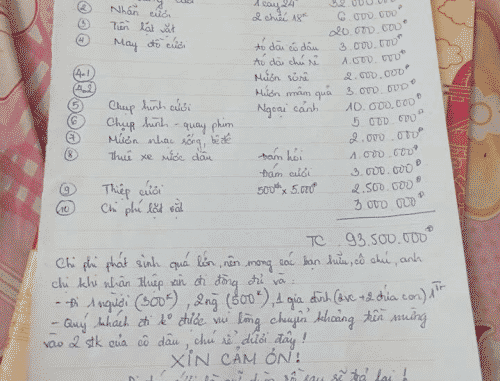 1 cây 24ᵏ 32.000.000
② Nhẫn cưới 2 chiếc 18ᵏ 6.000.000đ
③ Tiền lót vặt 20.000.000đ
④ May đồ cưới Áo dài cô dâu 3.000.000đ
Áo dài chú rể 1.000.000đ
4.1 Mướn soirê 2.000.000đ
4.2 Mướn mâm quả 3.000.000đ
⑤ Chụp hình cưới Ngoại cảnh 10.000.000đ
⑥ Chụp hình - quay phim 5.000.000đ
⑦ Mướn nhạc sống, bê đê 2.000.000đ
⑧ Thuê xe rước dâu Đám hỏi 1.000.000đ
Đám cưới 3.000.000đ
⑨ Thiệp cưới 500th x 5.000đ 2.500.000đ
⑩ Chi phí lặt vặt 3.000.000đ
TC 93.500.000đ
Chi phí phát sinh quá lớn, nên mong các bạn hữu, cô chú, anh
chị khi nhận thiệp xin đi đồng đủ và:
- Đi 1 người (300ᵏ), 2ng (500ᵏ), 1 gia đình (2vc + 2 đứa con) 1Tr
- Quý khách đi kº được vui lòng chuyển khoảng tiền mừng
vào 2 stk của cô dâu, chú rể dưới đây!
XIN CÁM ƠN!